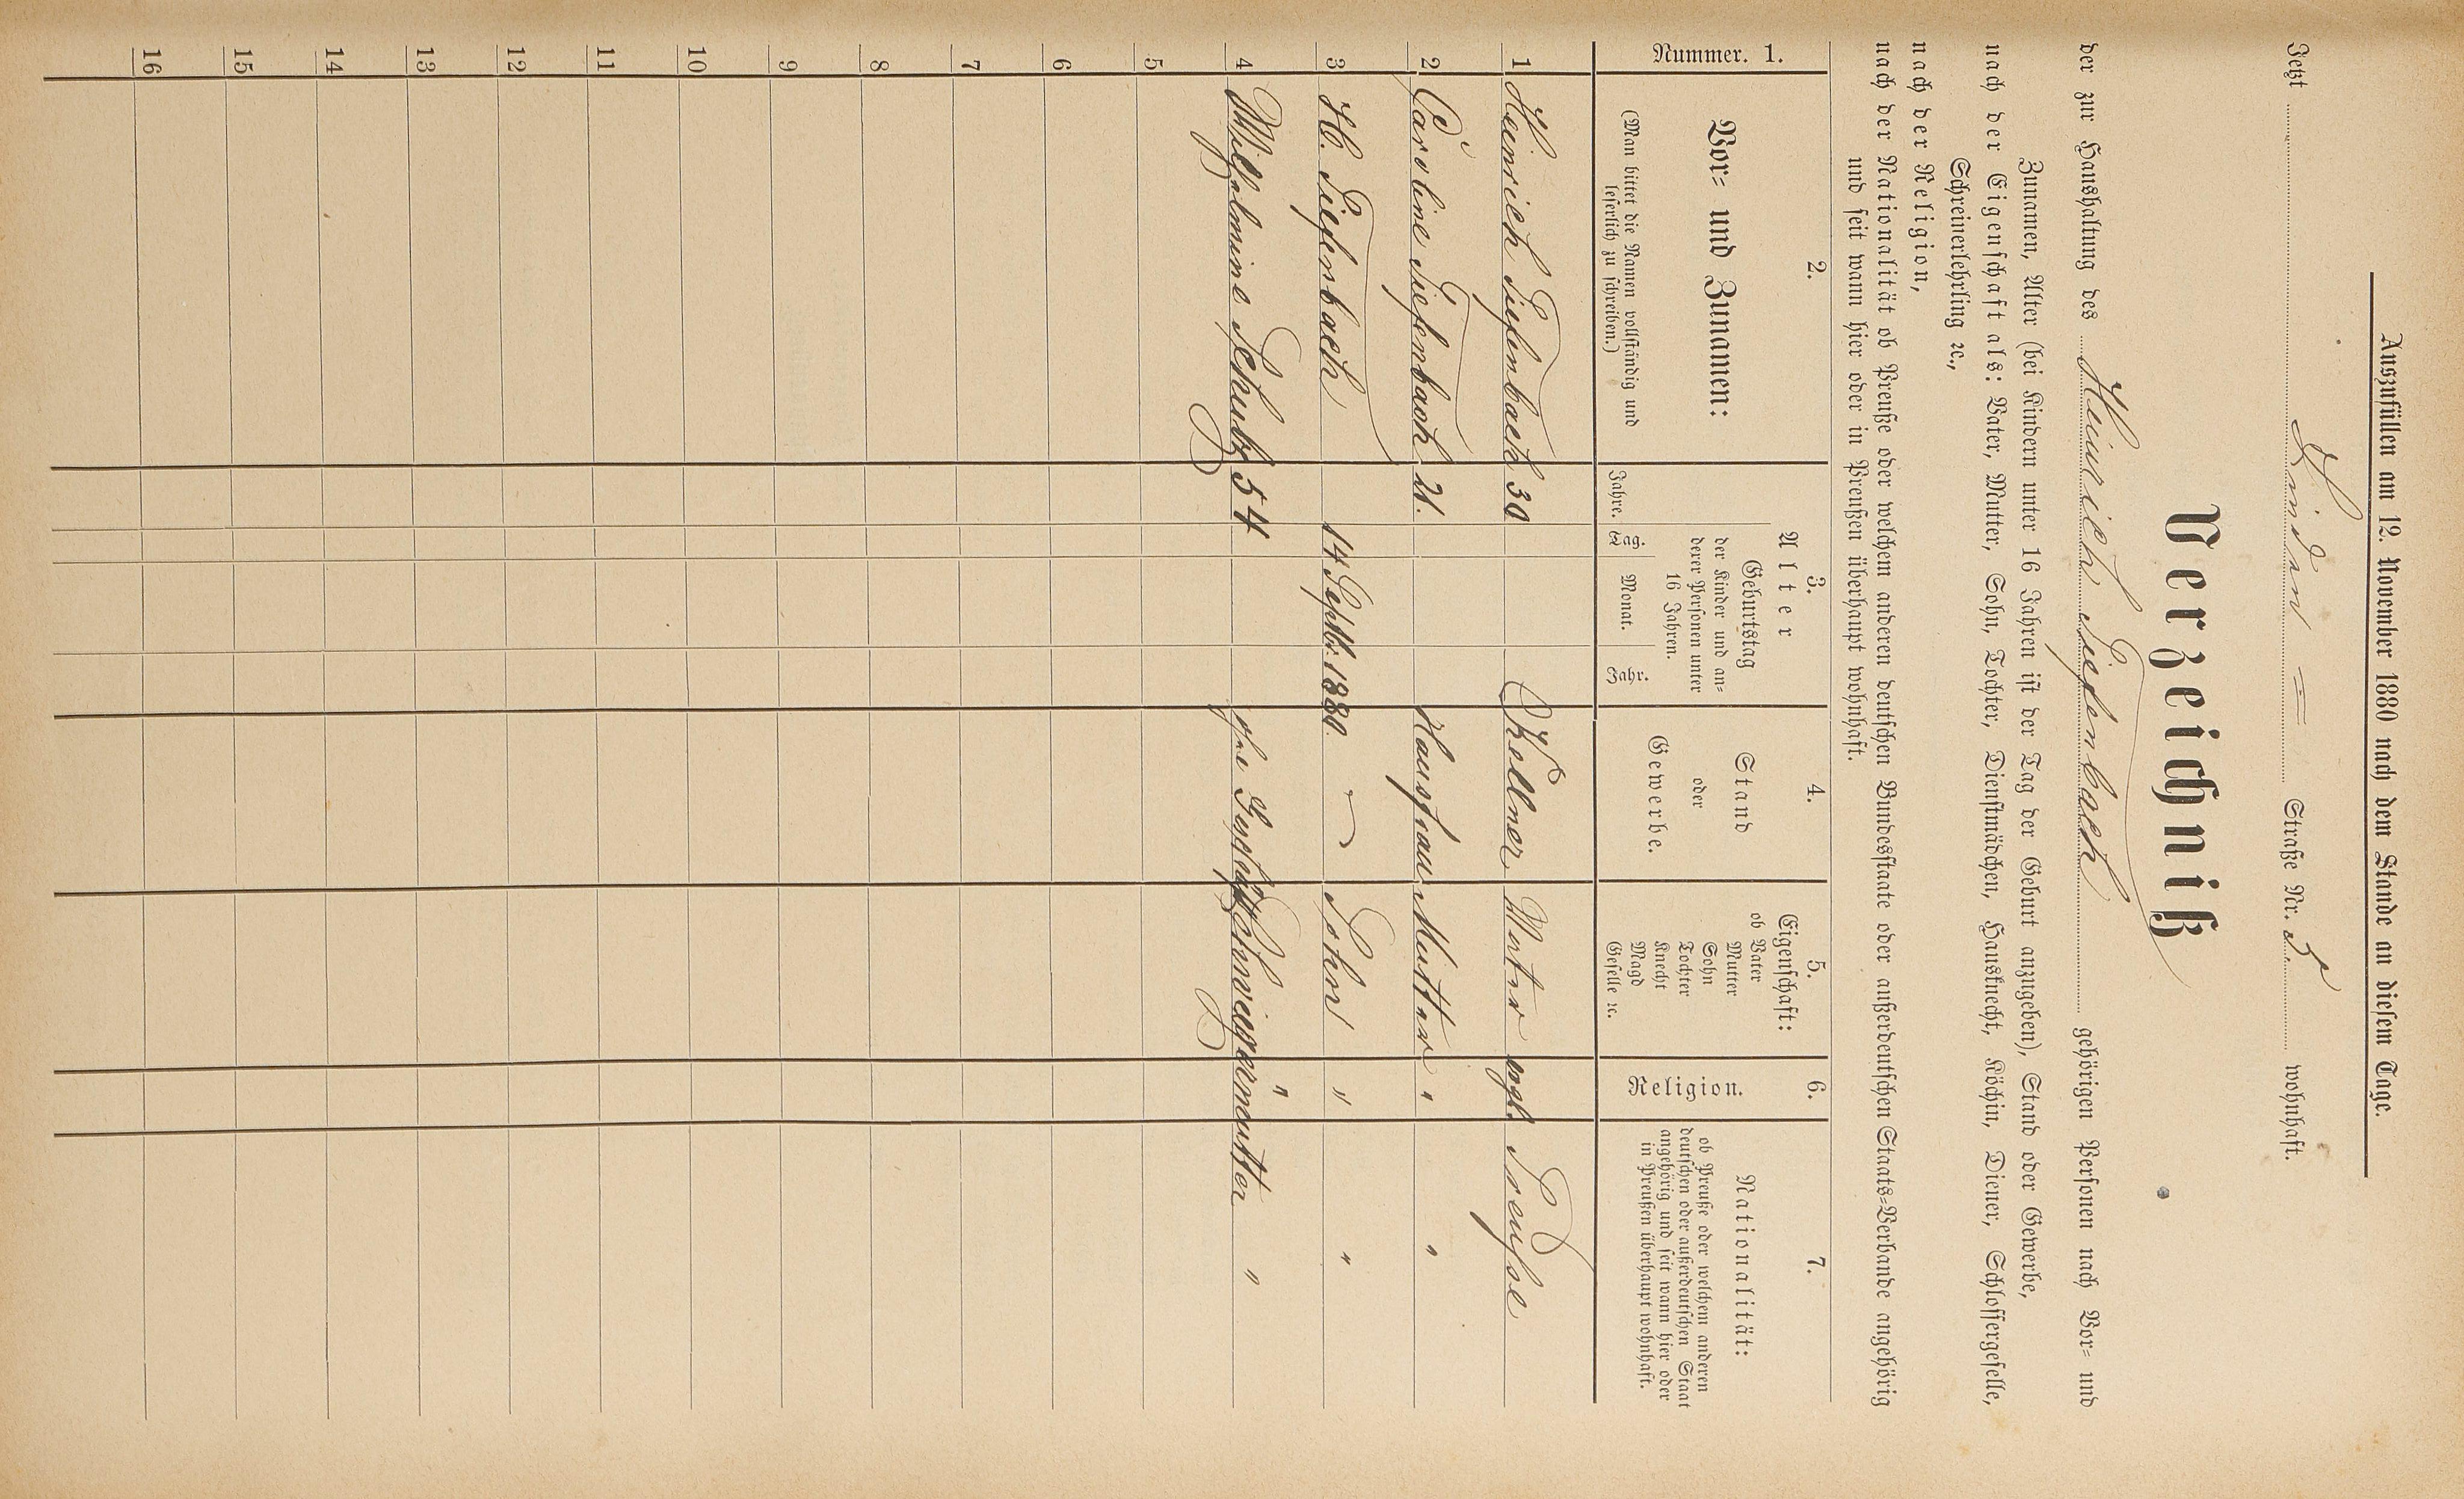 Auszufüllen am 12. November 1880 nach dem Stande an diesem Tage.
Jetzt Linden = Straße Nr. 3. wohnhaft.
Verzeichniß
der zur Haushaltung des Heinrich Tiefenbach gehörigen Personen nach Vor= und
Zunamen, Alter (bei Kindern unter 16 Jahren ist der Tag der Geburt anzugeben), Stand oder Gewerbe,
nach der Eigenschaft als: Vater, Mutter, Sohn, Tochter, Dienstmädchen, Hausknecht, Köchin, Diener, Schlossergeselle,
Schreinerlehrling ꝛc.,
nach der Religion,
nach der Nationalität ob Preuße oder welchem anderen deutschen Bundesstaate oder außerdeutschen Staats=Verbande angehörig
und seit wann hier oder in Preußen überhaupt wohnhaft.
Nummer. 1.
2.
Vor= und Zunamen:
(Man bittet die Namen vollständig und
leserlich zu schreiben.)
3.
Alter
Jahre.
Geburtstag
der Kinder und an=
derer Personen unter
16 Jahren.
Tag. Monat. Jahr.
4.
Stand
oder
Gewerbe.
5.
Eigenschaft:
ob Vater
Mutter
Sohn
Tochter
Knecht
Magd
Geselle ꝛc.
6.
Religion.
7.
Nationalität:
ob Preuße oder welchem anderen
deutschen oder außerdeutschen Staat
angehörig und seit wann hier oder
in Preußen überhaupt wohnhaft.
1 Heinrich Tiefenbach 30 Kellner Vater evgl. Preusse
2 Caroline Tiefenbach 21. Hausfrau Mutter " "
3 H. Tiefenbach 14 Septb. 1880. — Sohn " "
4 Wilhelmine Schultz 54 Schwiegermutter " "
5
6
7
8
9
10
11
12
13
14
15
16